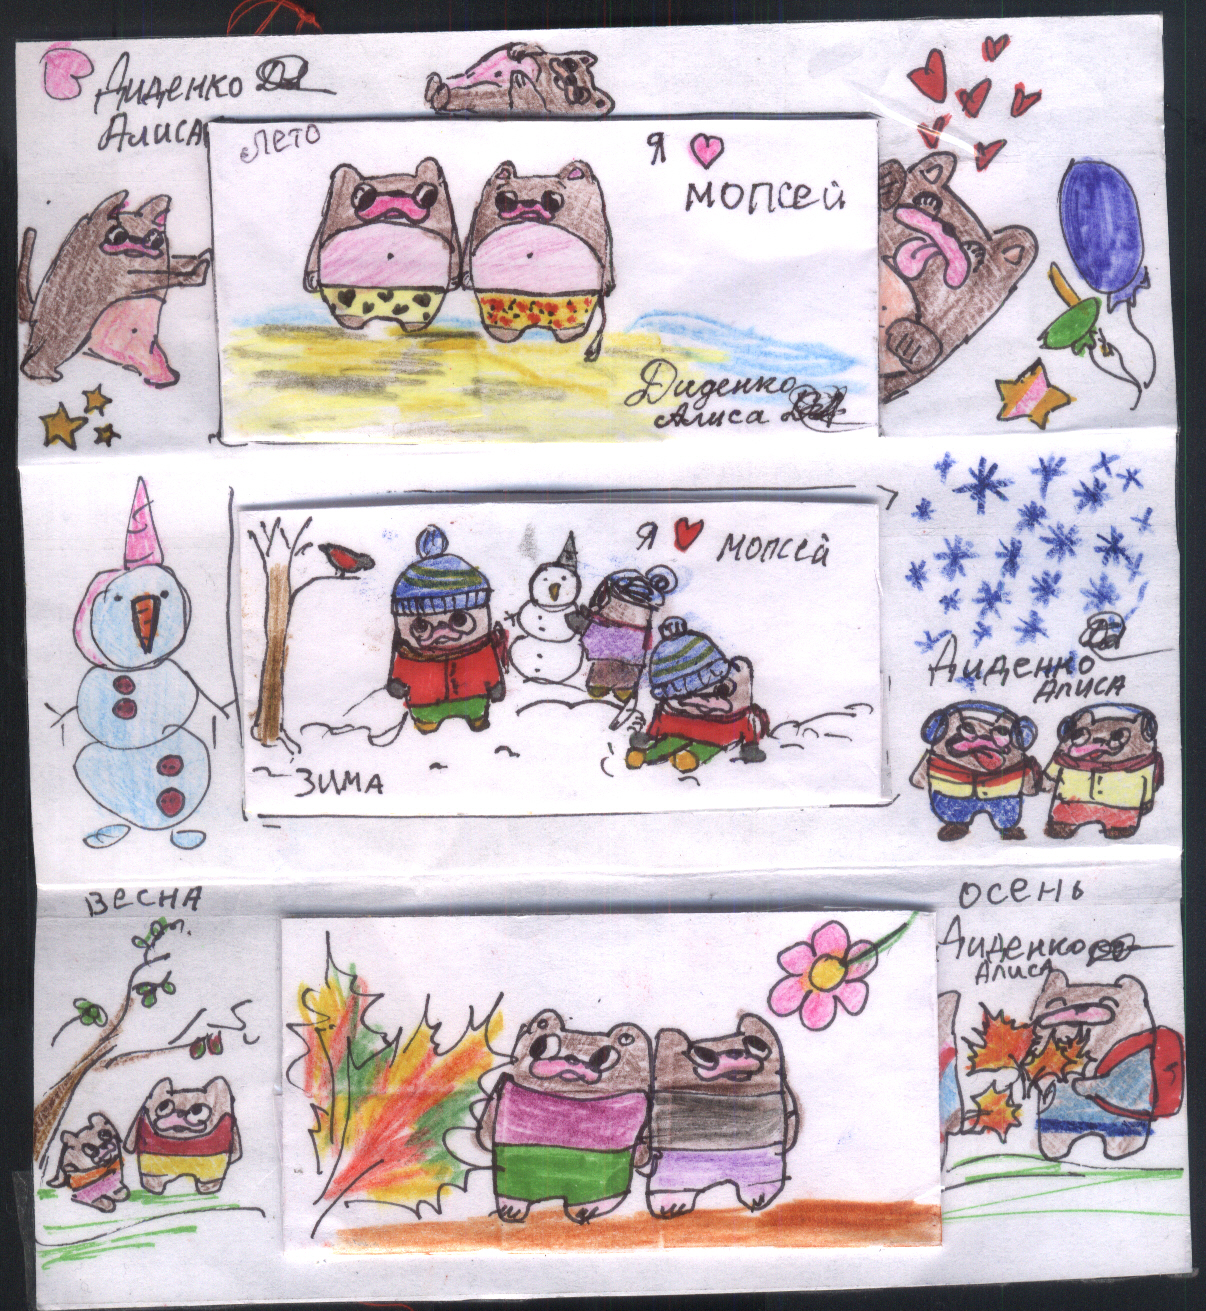 Диденко
Алиса
Лето
Я
мопсей
Диденко
Алиса
Я
мопсей
Зима
Диденко
Алиса
Весна
Осень
Диденко
Алиса